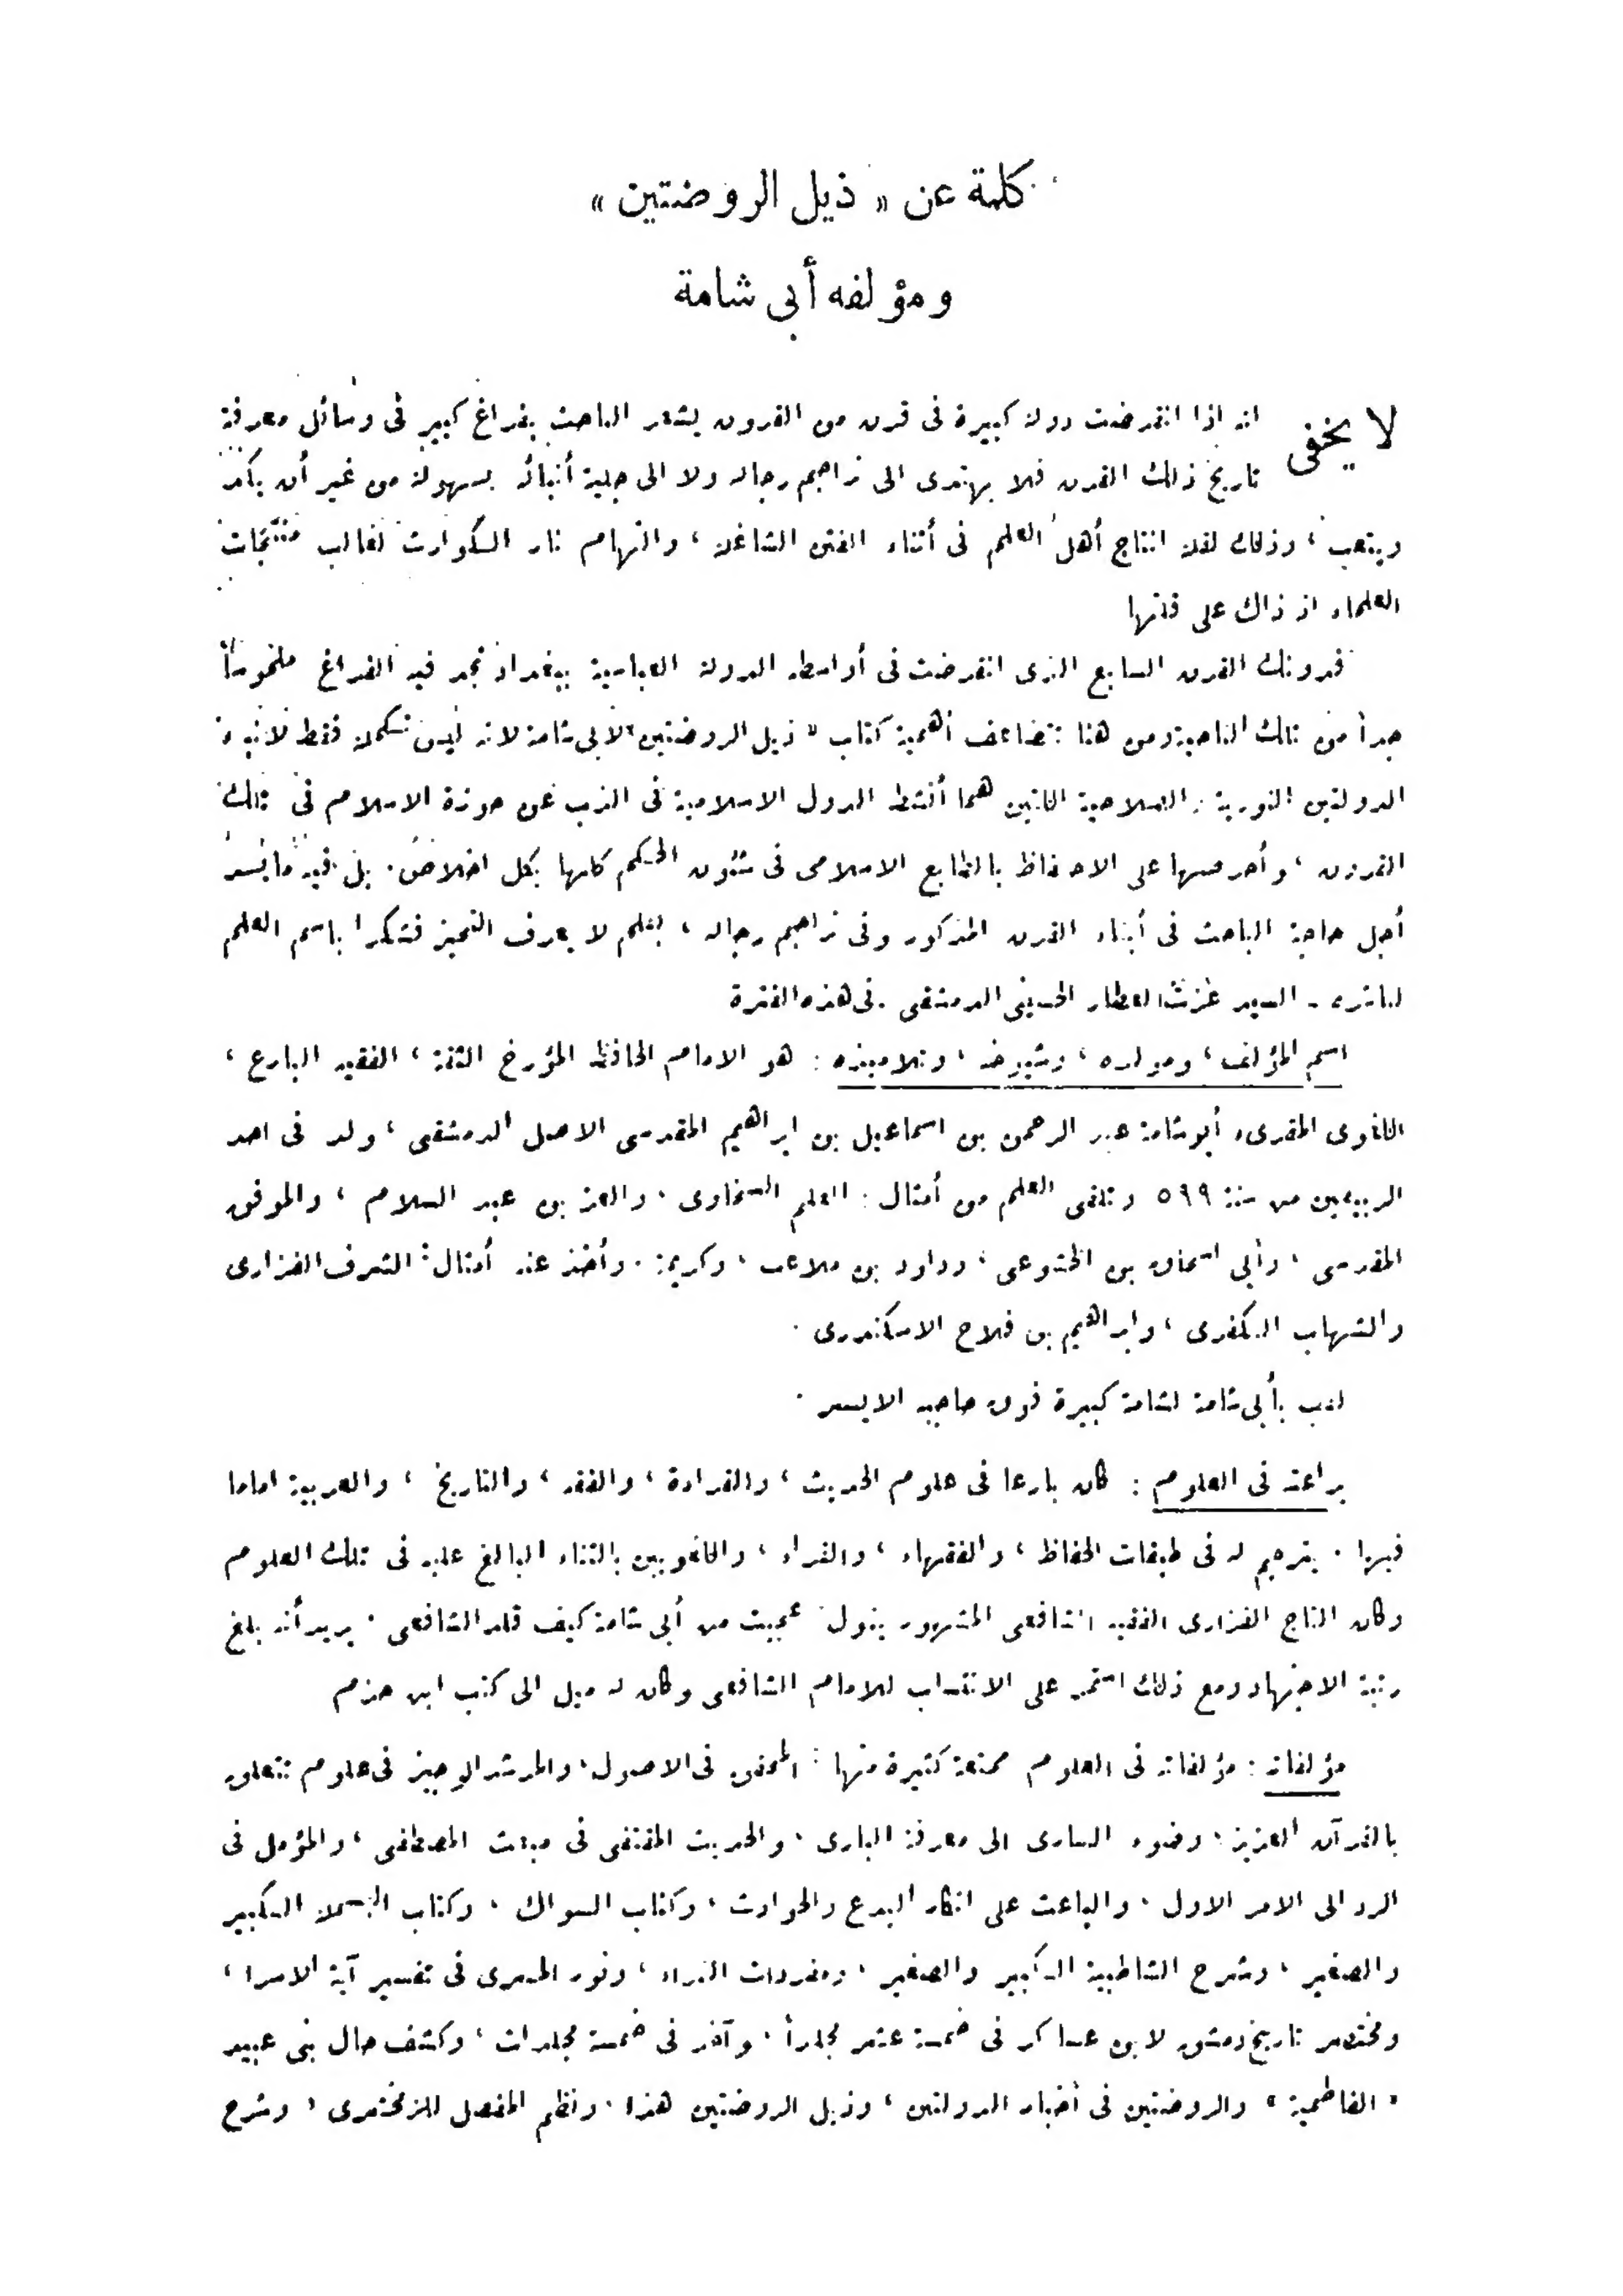 كلمة عن « ذيل الروضتين »
ومؤلفه أبى شامة
لا يخفى انه اذا انقرضت دولة كبيرة فى قرن من القرون يشعر الباحث بفراغ كبير فى وسائل معرفة
تاريخ ذلك القرن فلا يهتدى الى تراجم رجاله ولا الى جلية أنبائه بسهولة من غير أن يكد
ويتعب ، وذلك لقلة انتاج أهل العلم فى أثناء الفتن الشاغلة ، والتهام نار الكوارث لغالب منتجات
العلماء اذ ذاك على قلتها
فدونك القرن السابع الذى انقرضت فى أواسطه الدولة العباسية ببغداد تجد فيه الفراغ ملموساً
جداً من تلك الناحية ومن هنا تتضاعف أهمية كتاب « ذيل الروضتين » لابى شامة لانه ليس تكملة فقط لانباء
الدولتين النورية والصلاحية اللتين هما أنشط الدول الاسلامية فى الذب عن حوزة الاسلام فى تلك
القرون ، وأحرصها على الاحتفاظ بالطابع الاسلامى فى شئون الحكم كلها بكل اخلاص . بل فيه ما يسد
أجل حاجة الباحث فى أنباء القرن المذكور وفى تراجم رجاله ، بقلم لا يعرف التحيز فشكرا باسم العلم
لناشره ـ السيد عزت العطار الحسينى الدمشقى . فى هذه الفترة
اسم المؤلف ، ومولده ، وشيوخه ، وتلاميذه : هو الامام الحافظ المؤرخ الثقة ، الفقيه البارع ،
اللغوى المقرىء أبو شامة عبد الرحمن بن اسماعيل بن ابراهيم المقدسى الاصل الدمشقى ، ولد فى احد
الربيعين من سنة ٥٩٩ وتلقى العلم من أمثال : العلم السخاوى . والعز بن عبد السلام ، والموفق
المقدسى ، وأبى اسحاق بن الخشوعى ، وداود بن ملاعب ، وكريمة . وأخذ عنه أمثال : الشرف الفزارى
والشهاب الكفرى ، وابراهيم بن فلاح الاسكندرى .
لقب بأبى شامة لشامة كبيرة فوق حاجبه الايسر .
براعته فى العلوم : كان بارعا فى علوم الحديث ، والقراءة ، والفقه ، والتاريخ ، والعربية اماما
فيها . يترجم له فى طبقات الحفاظ ، والفقهاء ، والقراء ، واللغويين بالثناء البالغ عليه فى تلك العلوم
وكان التاج الفزارى الفقيه الشافعى المشهور يقول عجبت من أبى شامة كيف قلد الشافعى . يريد أنه بلغ
رتبة الاجتهاد ومع ذلك استمر على الانتساب للامام الشافعى وكان له ميل الى كتب ابن حزم
مؤلفاته : مؤلفاته فى العلوم ممتعة كثيرة منها : المحقق فى الاصول ، والمرشد الوجيز فى علوم تتعلق
بالقرآن العزيز ، وضوء السارى الى معرفة البارى . والحديث المقتفى فى مبعث المصطفى ، والمؤمل فى
الرد الى الامر الاول . والباعث على انكار البدع والحوادث ، وكتاب السواك . وكتاب البسملة الكبير
والصغير ، وشرح الشاطبية الكبير والصغير ، ومفردات القراء ، ونور المسرى فى تفسير آية الاسرا ،
ومختصر تاريخ دمشق لابن عساكر فى خمسة عشر مجلداً . وآخر فى خمسة مجلدات ، وكشف حال بنى عبيد
« الفاطمية » والروضتين فى أخبار الدولتين ، وذيل الروضتين هذا . ونظم المفصل للزمخشرى ، وشرح